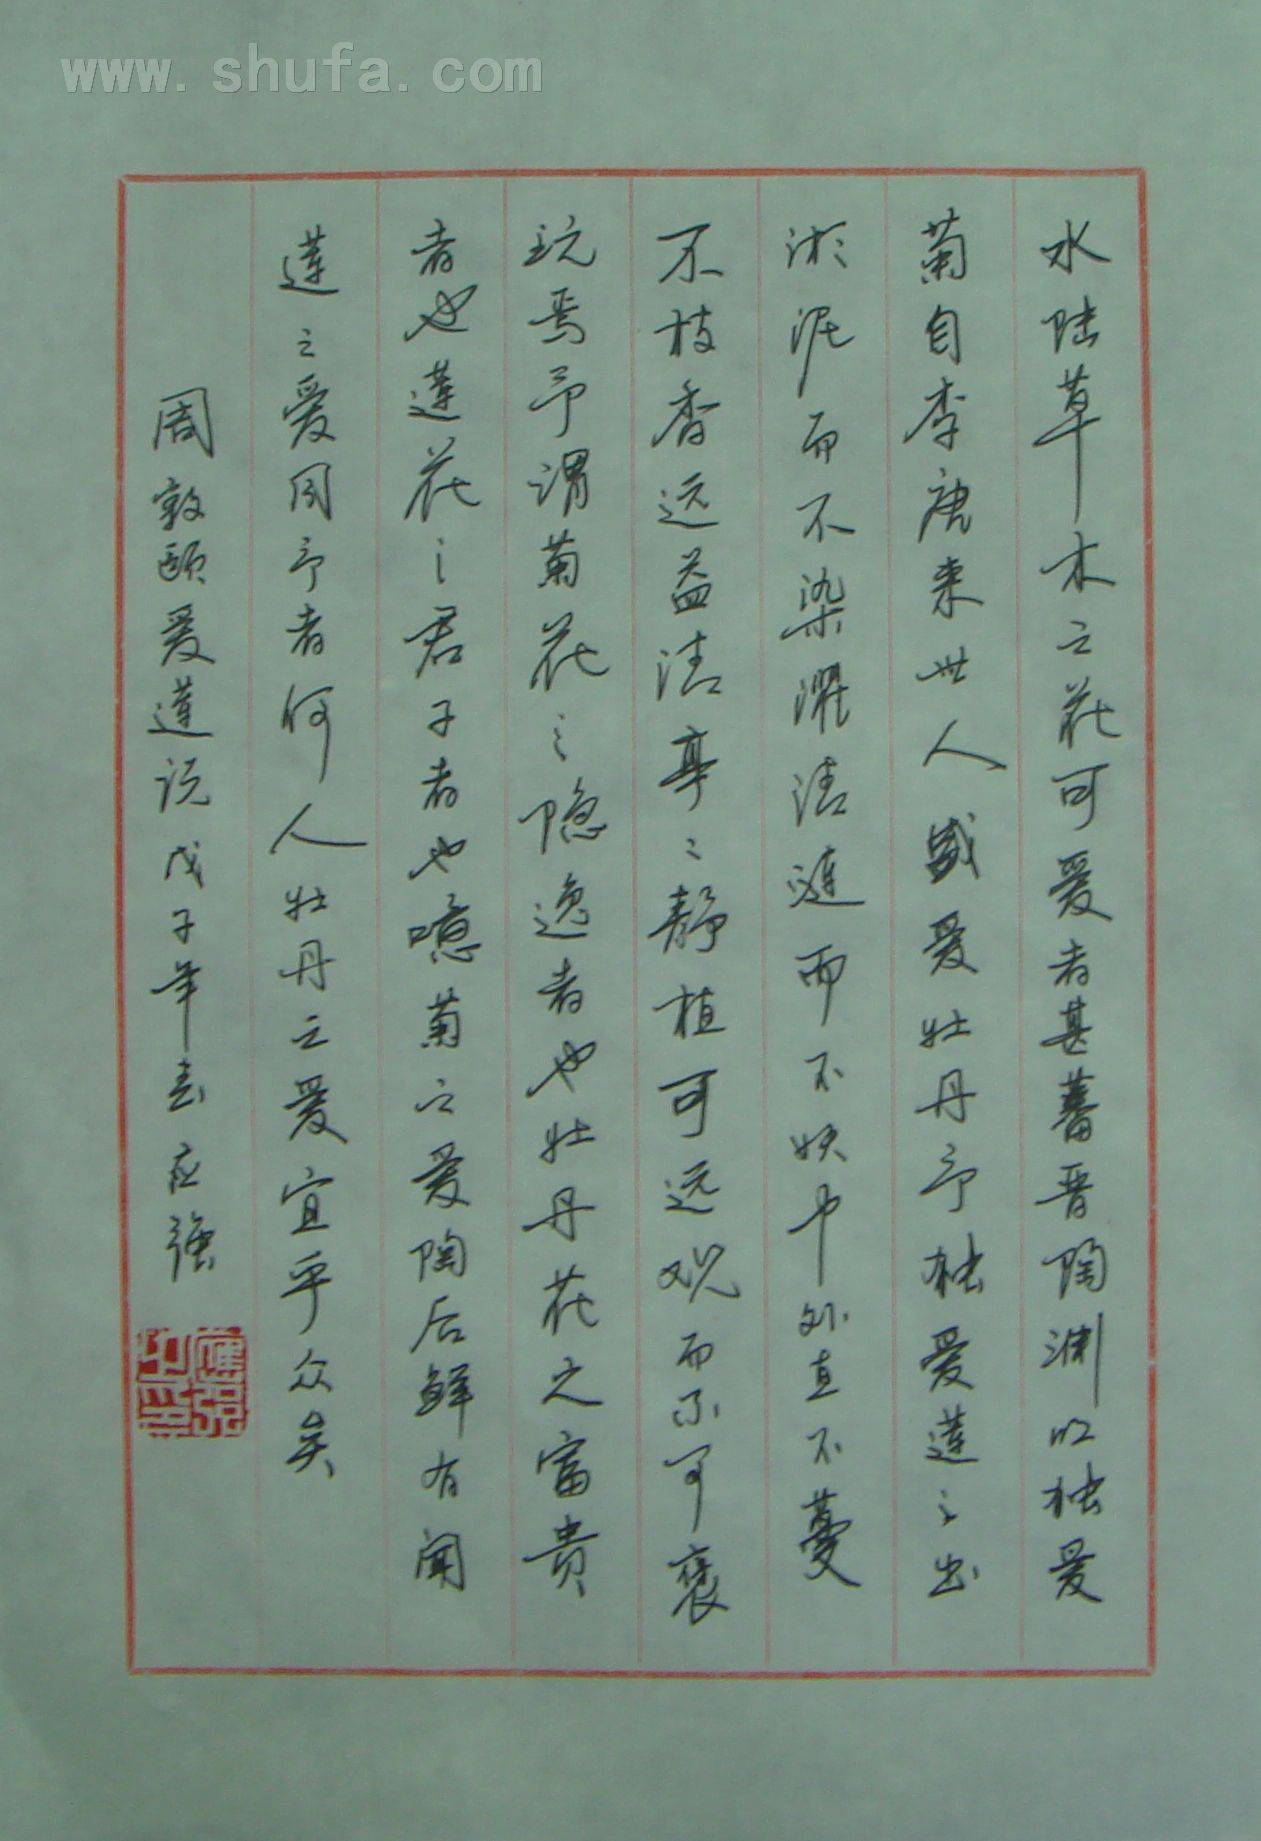 www.shufa.com
水陆草木之花可爱者甚蕃晋陶渊明独爱
菊自李唐来世人盛爱牡丹予独爱莲之出
淤泥而不染濯清涟而不妖中外直不蔓
不枝香远益清亭〻静植可远观而不可亵
玩焉予谓菊花之隐逸者也牡丹花之富贵
者也莲花之君子者也噫菊之爱陶后鲜有闻
莲之爱同予者何人牡丹之爱宜乎众矣
周敦颐爱莲说戊子年春应强
應强之印